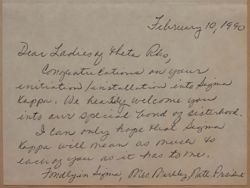 February 10, 1990
Dear Ladies of Theta Rho,
Congratulations on your
initiation/installation into Sigma
Kappa. We heartily welcome you
into our special bond of sisterhood.
I can only hope that Sigma
Kappa will mean as much to
each of you as it has to me.
Fondly in Sigma, Miss